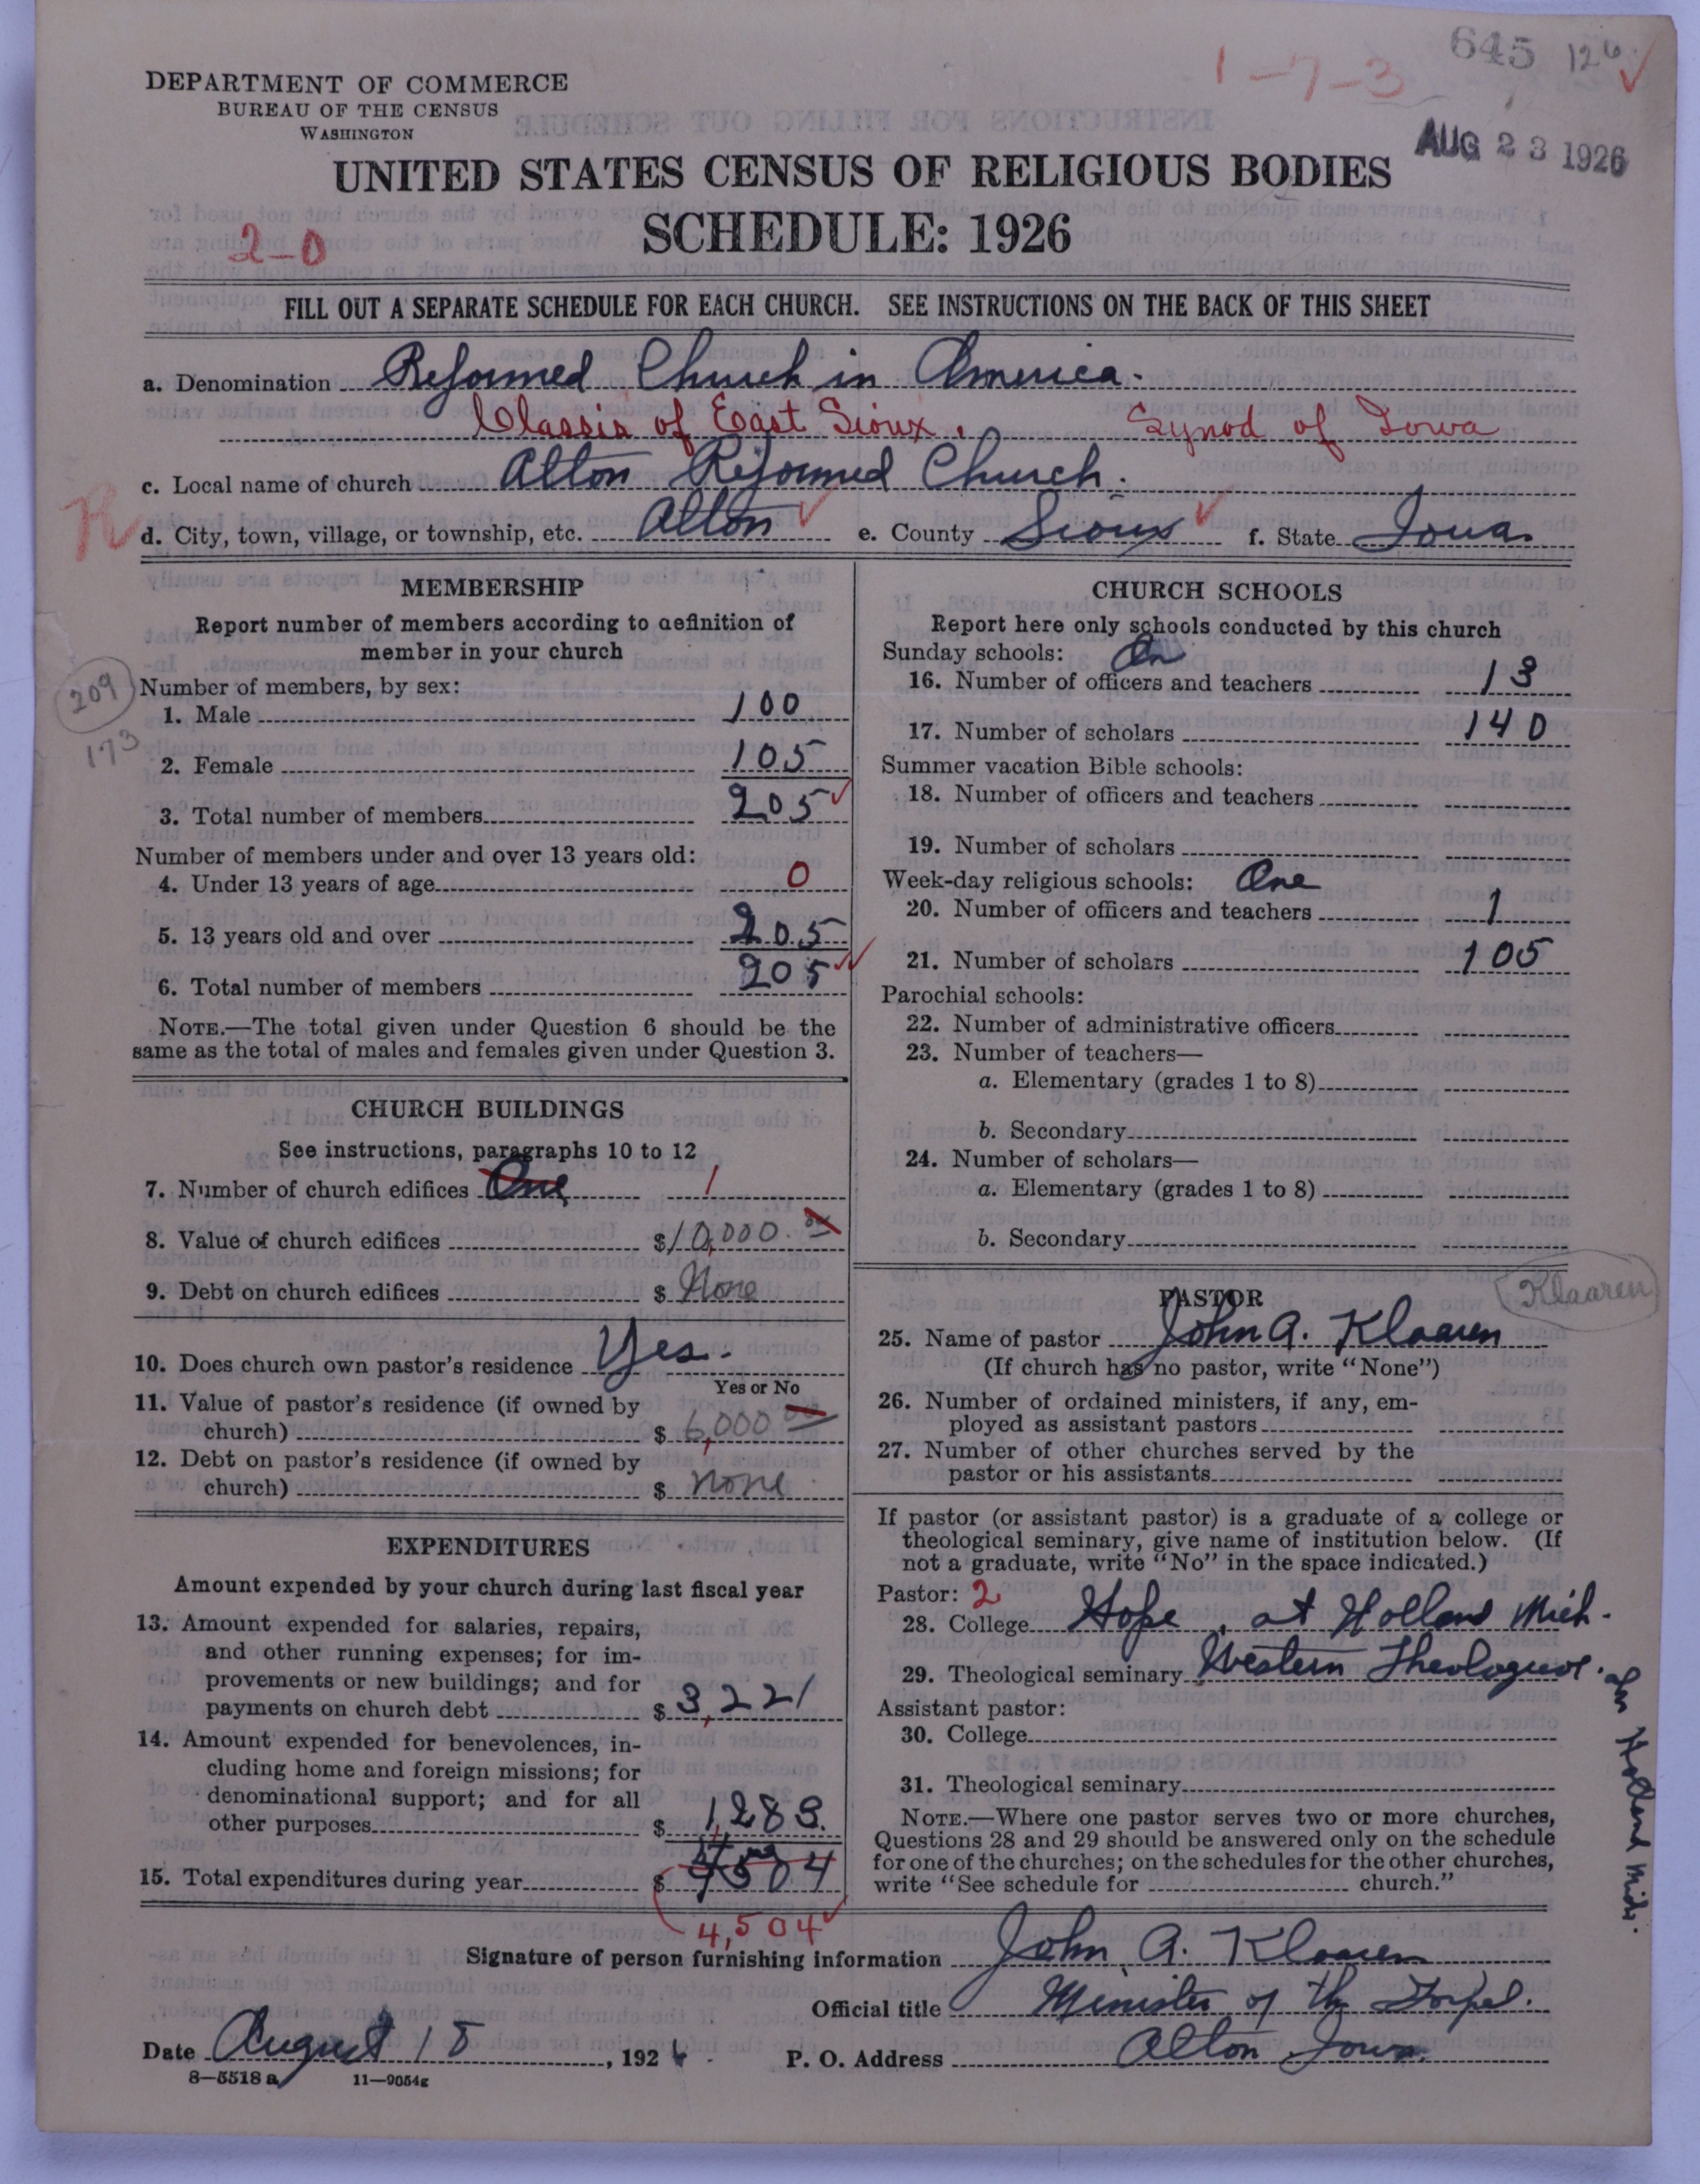 645 126
1-7-3
DEPARTMENT OF COMMERCE
BUREAU OF THE CENSUS
WASHINGTON
AUG 23 1926
UNITED STATES CENSUS OF RELIGIOUS BODIES
SCHEDULE: 1926
2-0
FILL OUT A SEPARATE SCHEDULE FOR EACH CHURCH. SEE INSTRUCTIONS ON THE BACK OF THIS SHEET
a. Denomination Reformed Church in America.
Classis of East Sioux, Synod of Iowa
c. Local name of church Alton Reformed Church.
R
d. City, town, village, or township, etc. Alton e. County Sioux f. State Iowa.
MEMBERSHIP
Report number of members according to definition of
member in your church
209
173
Number of members, by sex:
1. Male 100
2. Female 105
3. Total number of members 205
Number of members under and over 13 years old:
4. Under 13 years of age 0
5. 13 years old and over 205
6. Total number of members 205
NOTE.—The total given under Question 6 should be the
same as the total of males and females given under Question 3.
CHURCH BUILDINGS
See instructions, paragraphs 10 to 12
7. Number of church edifices One 1
8. Value of church edifices $10,000.00
9. Debt on church edifices $ None
10. Does church own pastor's residence Yes.
Yes or No
11. Value of pastor's residence (if owned by
church) $ 6,000 00
12. Debt on pastor's residence (if owned by
church) $ none
EXPENDITURES
Amount expended by your church during last fiscal year
13. Amount expended for salaries, repairs,
and other running expenses; for im-
provements or new buildings; and for
payments on church debt $ 3,221
14. Amount expended for benevolences, in-
cluding home and foreign missions; for
denominational support; and for all
other purposes $ 1,283.
15. Total expenditures during year $ 4504
4,504
CHURCH SCHOOLS
Report here only schools conducted by this church
Sunday schools:
16. Number of officers and teachers 13
17. Number of scholars 140
Summer vacation Bible schools:
18. Number of officers and teachers
19. Number of scholars
Week-day religious schools: One
20. Number of officers and teachers 1
21. Number of scholars 105
Parochial schools:
22. Number of administrative officers
23. Number of teachers—
a. Elementary (grades 1 to 8)
b. Secondary
24. Number of scholars—
a. Elementary (grades 1 to 8)
b. Secondary
PASTOR
Klaaren
25. Name of pastor John A. Klaaren
(If church has no pastor, write "None")
26. Number of ordained ministers, if any, em-
ployed as assistant pastors
27. Number of other churches served by the
pastor or his assistants
If pastor (or assistant pastor) is a graduate of a college or
theological seminary, give name of institution below. (If
not a graduate, write "No" in the space indicated.)
Pastor: 2
28. College Hope, at Holland Mich.
29. Theological seminary Western Theological.
in Holland Mich.
Assistant pastor:
30. College
31. Theological seminary
NOTE.—Where one pastor serves two or more churches,
Questions 28 and 29 should be answered only on the schedule
for one of the churches; on the schedules for the other churches,
write "See schedule for church."
Signature of person furnishing information John A. Klaaren
Official title Minister of the Gospel.
Date August 18, 1926. P. O. Address Alton Iowa.
8—5518 a 11—9054g